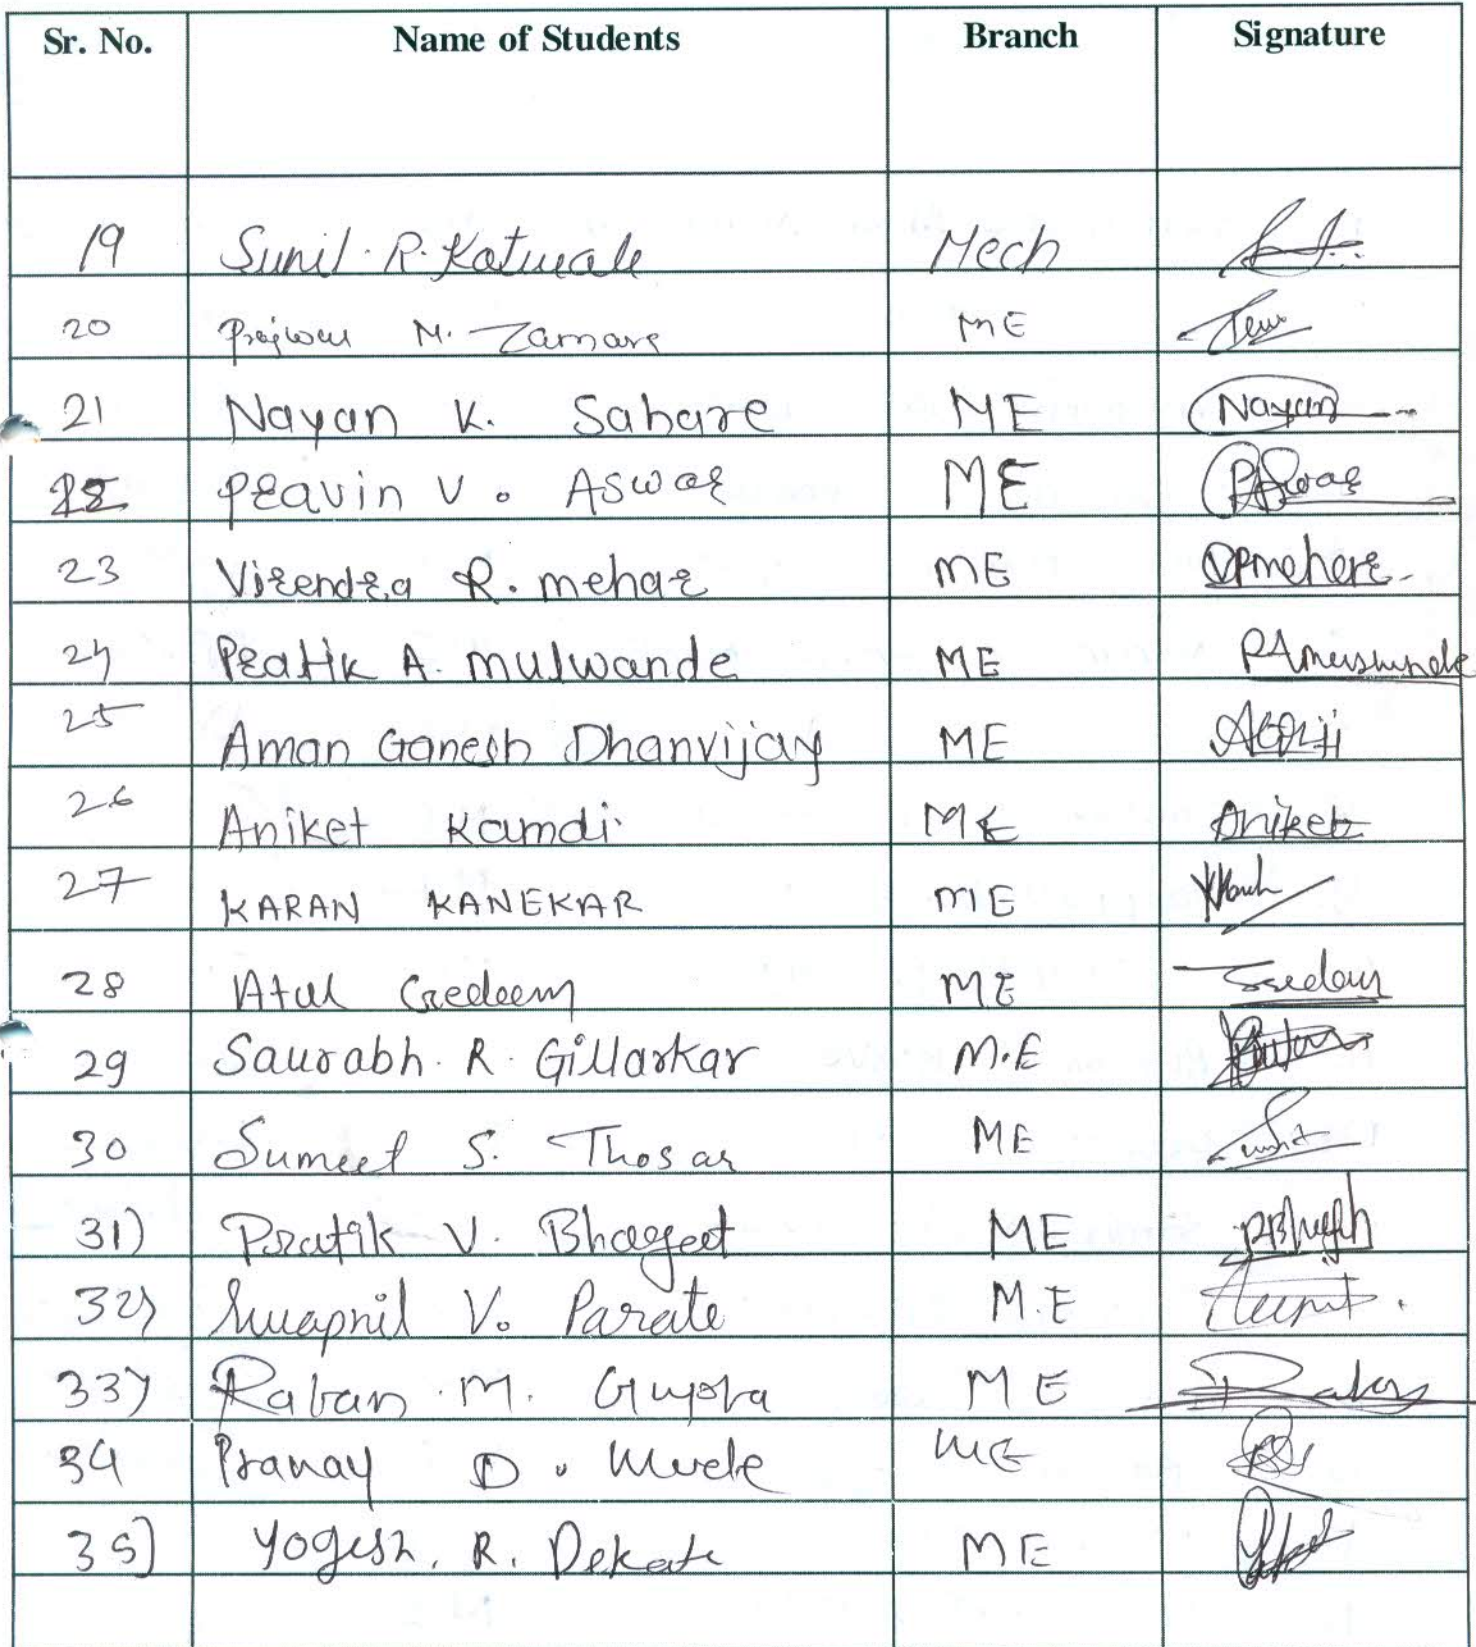 Sr. No. Name of Students Branch Signature
19 Sunil. R. Katwale Mech
20 Prajwal M. Zamare ME
21 Nayan K. Sahare ME Nayan
22 Pravin V. Aswar ME PAswar
23 Virendra R. mehar ME
24 Pratik A. mulwande ME
25 Aman Ganesh Dhanvijay ME
26 Aniket Kamdi ME Aniket
27 KARAN KANEKAR ME
28 Atul Gedam ME
29 Saurabh. R. Gillarkar M.E
30 Sumeet S. Thosar ME
31) Pratik V. Bhagat ME
32) Swapnil V. Parate M.E
33) Ratan M. Gupta ME
34 Pranay D. ME
35) Yogesh. R. Dekate ME